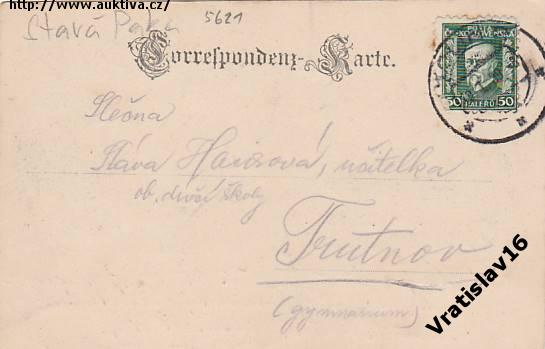 http://www.auktiva.cz/
Stará Paka
5621
Correspondenz-Karte.
ČESKOSLOVENSKÁ
50 HALÉŘŮ 50
Slečna
Sláva
učitelka
ob. dívčí školy
Trutnov
(gymnasium)
Vratislav16